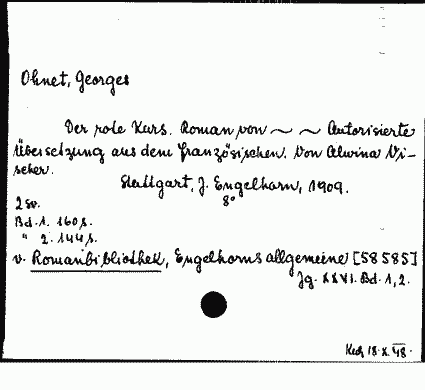 Ohnet, Georges
Der rote Kurs. Roman von ~ ~ Autorisierte
Übersetzung aus dem Französischen. Von Alwina Vi-
scher.
Stuttgart, J. Engelhorn, 1909.
8°
2 Bv.
Bd. 1. 160 s.
" 2. 144 s.
v. Romanbibliothek, Engelhorns allgemeine [58585]
Jg. XXVI. Bd. 1, 2.
18. X. 48.